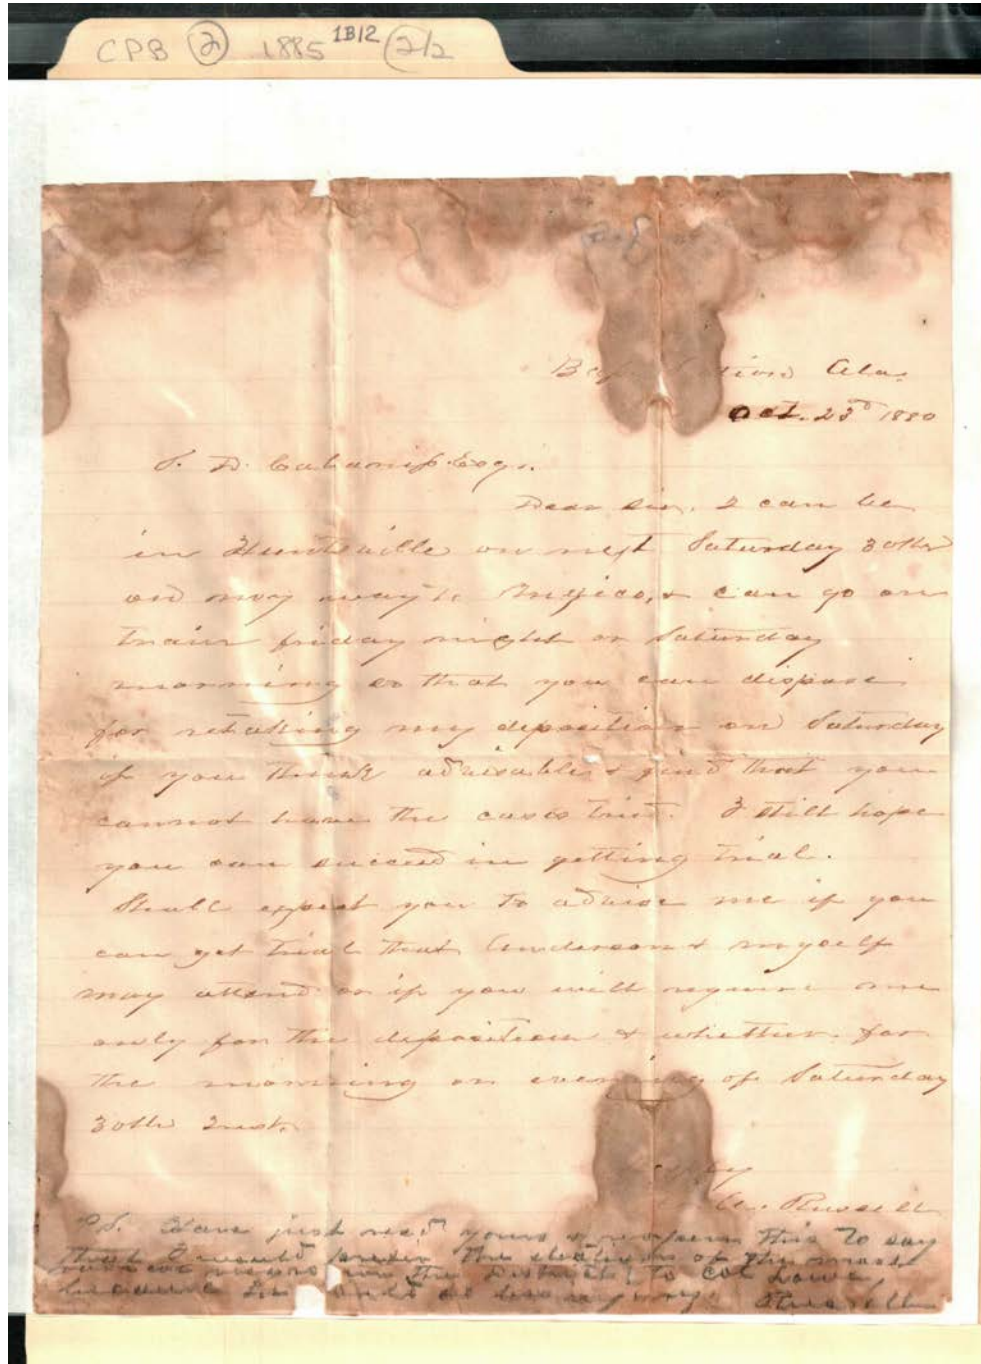 CPB (2) 1885 1B12 (2/2)
Ala.
Oct. 23d 1880
S. D. Cabaniss Esq.
Dear Sir, I can be
in Huntsville on next Saturday 30th
on my way to & can go on
train friday night or Saturday
morning so that you can dispose
for retaking my deposition on Saturday
if you think advisable & find that you
cannot have the cases tried. I still hope
you can succeed in getting trial.
Shall expect you to advise me if you
can get trial that Anderson & myself
may attend or if you will require me
only for the deposition & whether for
the morning or evening of Saturday
30th Inst.
Russell
P.S. Have just recd yours & reopen this to say
that I would prefer the election of the most
in the District, to Col Lowe,